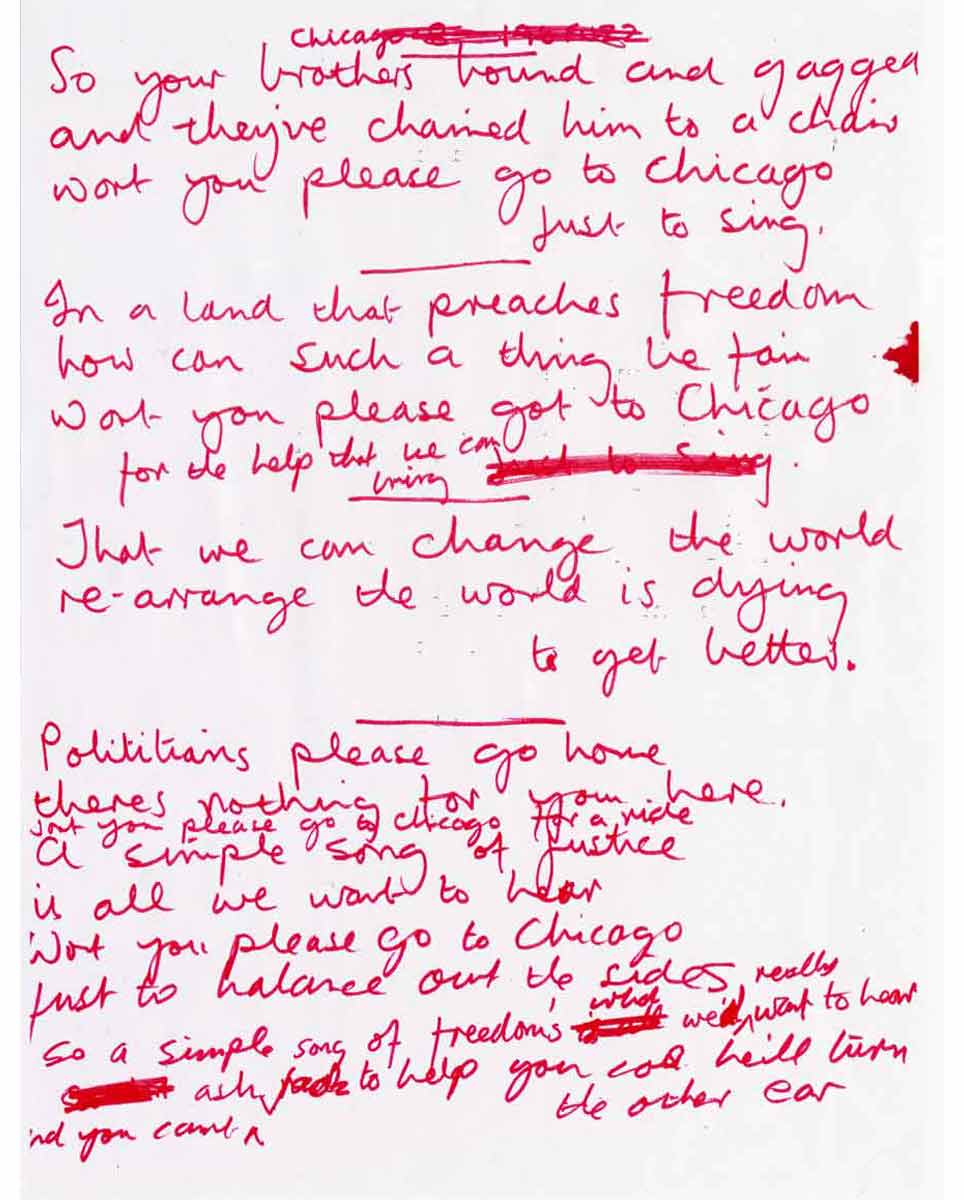 Chicago
So your brothers bound and gagged
and they've chained him to a chair
wont you please go to Chicago
Just to sing.
In a land that preaches freedom
how can such a thing be fair
Wont you please got to Chicago
for the help that we can
bring
That we can change the world
re-arrange the world is dying
to get better.
Polititians please go home
theres nothing for you here.
wont you please go to Chicago for a ride
a simple song of Justice
is all we want to hear
Wont you please go to Chicago
Just to balance out the sides
really
what
So a simple song of freedom's we'd want to hear
ask to help you heill turn
the other ear
nd you cant